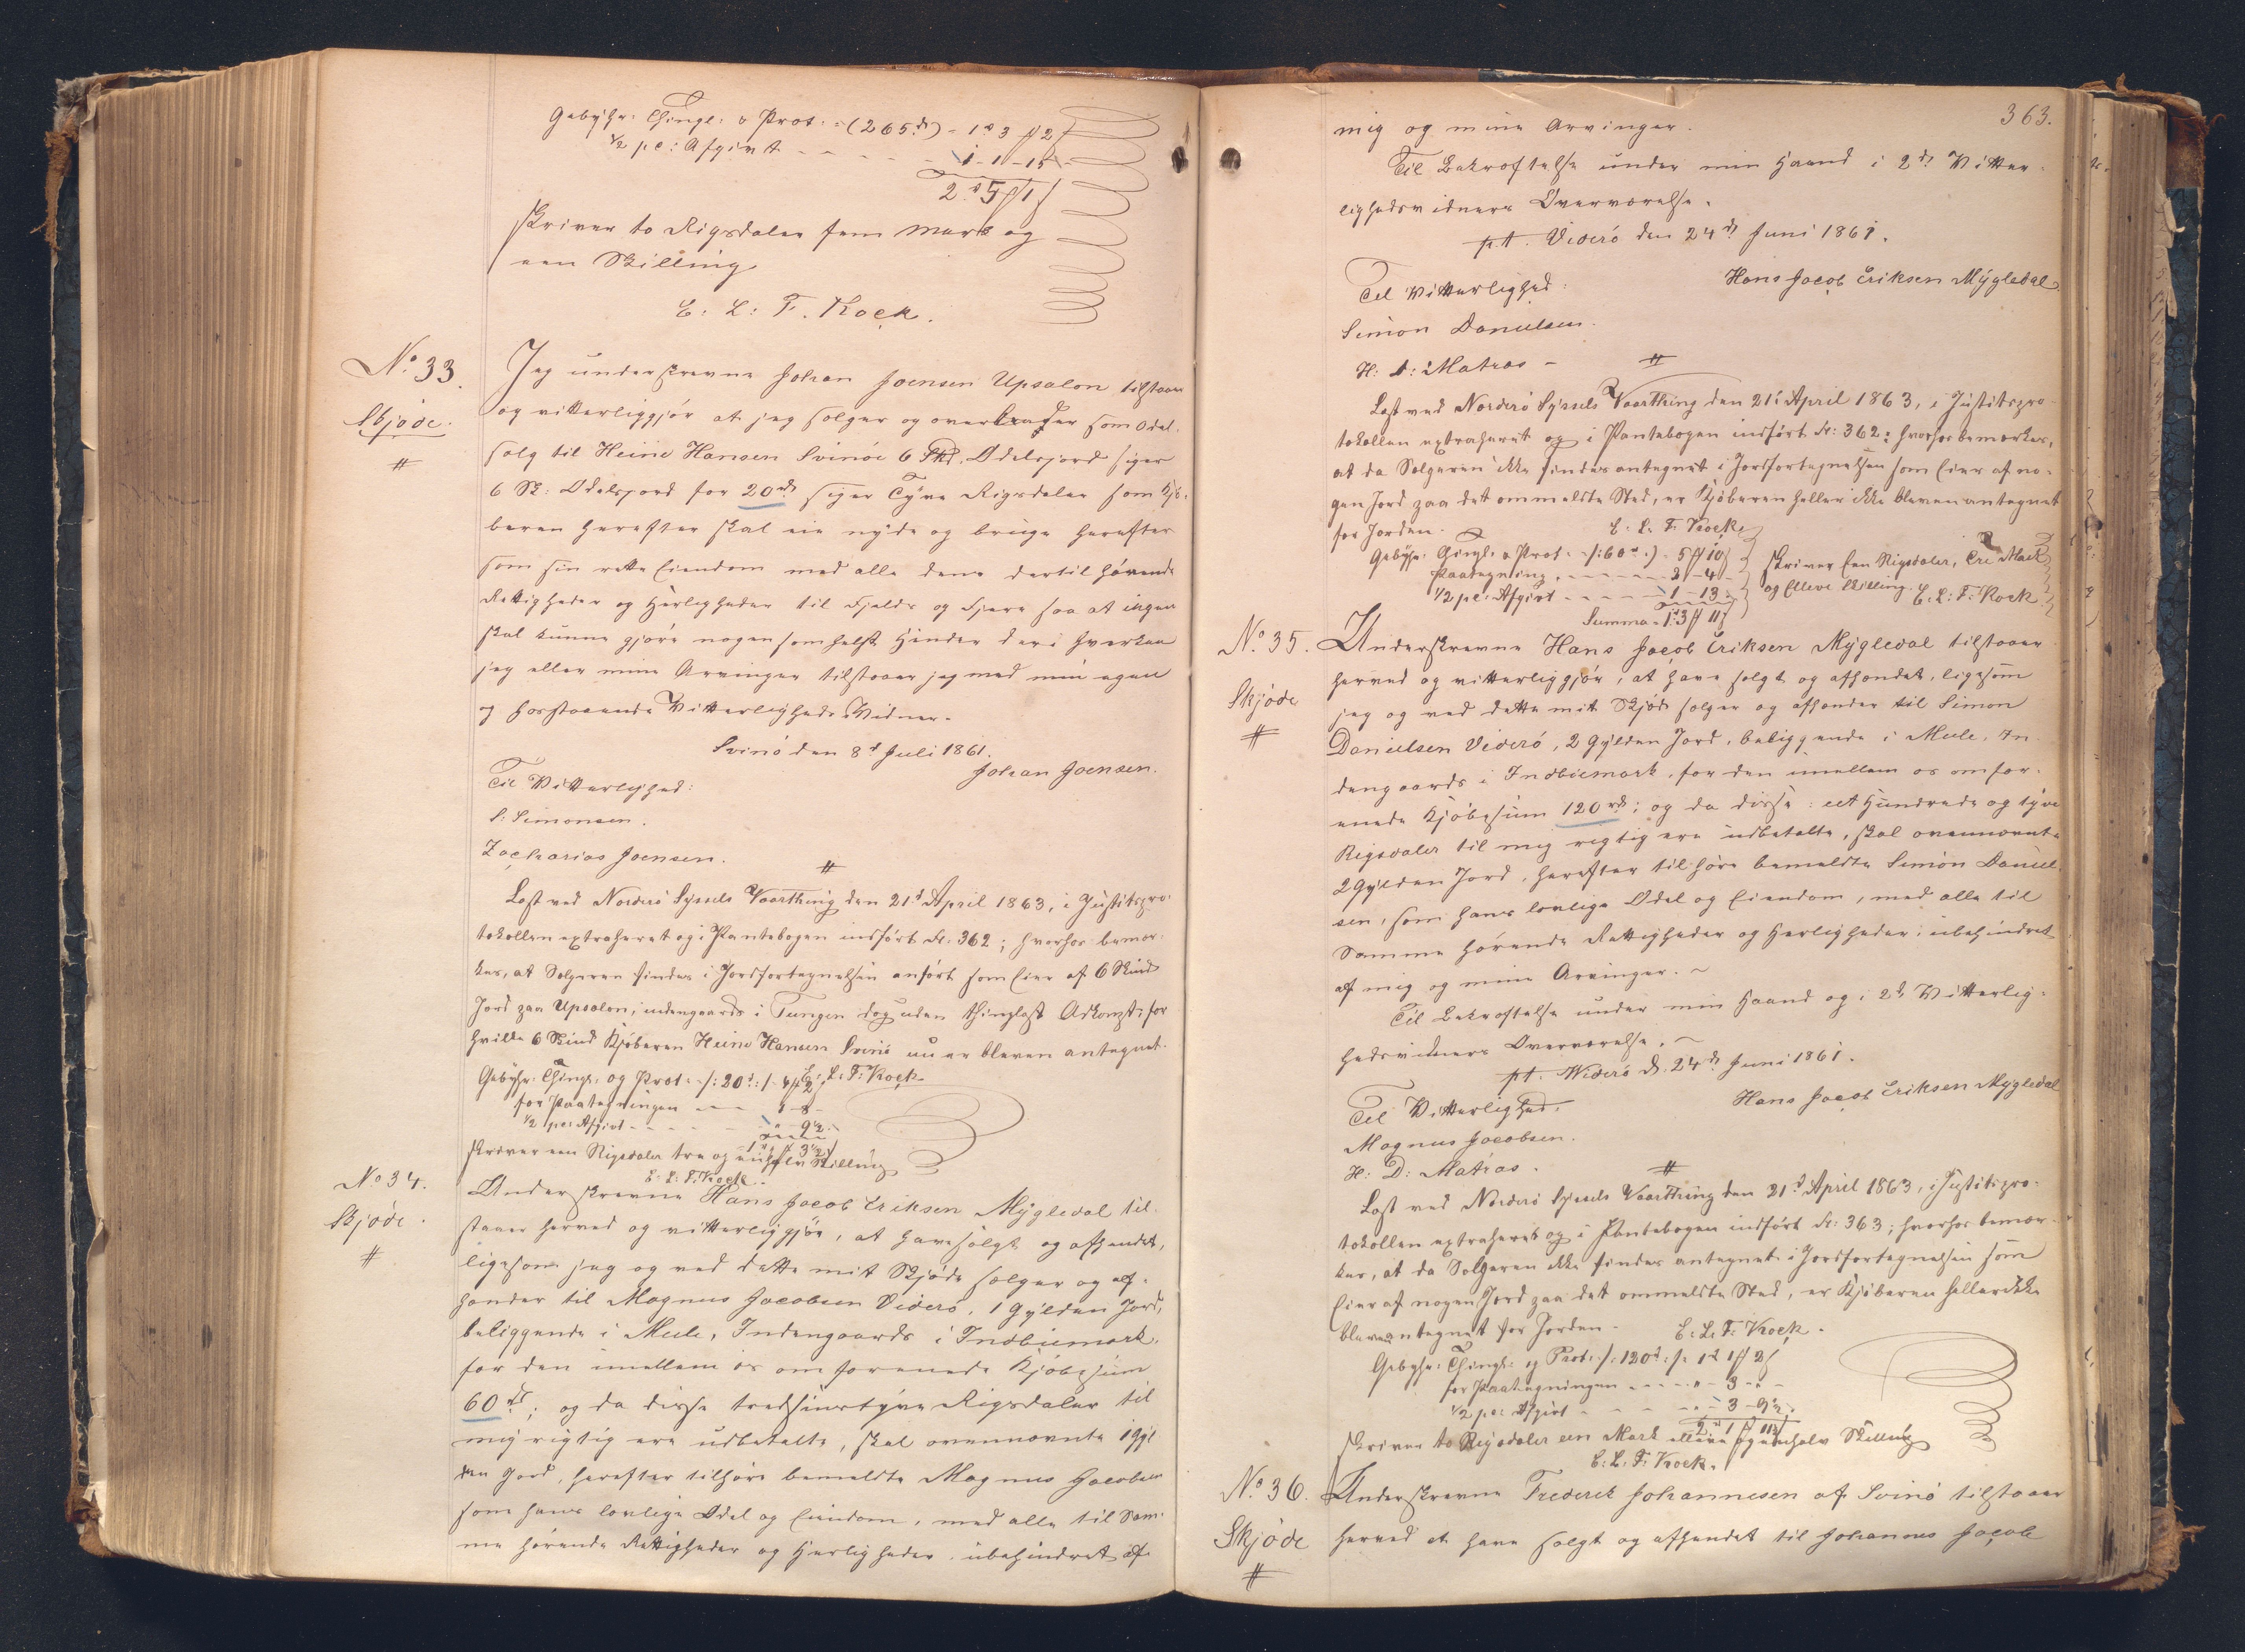 Gebyhr: Thingl: & Prot: (265rd) - 1rd 3 # 2 ß
½ pc: Afgivt - - - - 1 - 1 - 15 -
2rd 5 # 1 ß
skriver to Rigsdaler fem Mark og
een Skilling
C: L: F. Kock.
No 33.
Skjøde.
#
Jeg underskrevne Johan Joensen Upsalon tilstaaer
og vitterliggjør at jeg sælger og overdrager som Odel-
salg til Heine Hansen Svinöe 6 Skd. Odelsjord siger
6 Sk: Odelsjord for 20rd siger Tyve Rigsdaler som Kjö-
beren herefter skal eie nyde og bruge herefter
som sin rette Eiendom med alle dens dertil hörende
Rettigheder og Herligheder til Fjelds og Fjære saa at ingen
skal kunne gjöre nogensomhelst Hinder deri hverken
jeg eller mine Arvinger tilstaaer jeg med min egen
og hosstaaende Vitterligheds Vidner.
Svinö den 8d Juli 1861.
Johan Joensen.
Til Vitterlighed:
S. Simonsen.
Zacharias Joensen.
#
Læst ved Norderö Syssels Vaarthing den 21d April 1863, i Justitspro-
tokollen extraheret og i Pantebogen indfört Fol: 362; hvorhos bemær-
kes, at Sælgeren findes i Jordfortegnelsen anfört som Eier af 6 Skind
Jord paa Upsalon, indengaards i Tungen dog uden thinglæst Adkomst, for
hvilke 6 Skind Kjöberen Heine Hansen Svinö nu er bleven antegnet.
C: L: F: Kock.
Gebyhr: Thingl: og Prot: /: 20d :/ - 4 # 2 ß
for Paategningen - - -
½ pc: Afgivt - - - - " - 9½ -
skriver een Rigsdaler tre og en halv Skilling
C: L: F: Kock.
No 34.
Skjøde.
#
Underskrevne Hans Jacob Eriksen Mýgledal til-
staaer herved og vitterliggjör, at have solgt og afhændet,
ligesom jeg og ved dette mit Skjöde sælger og af-
hænder til Magnus Jacobsen Viderö, 1 Gylden Jord,
beliggende i Mule, Indengaards i Indbiemark,
for den imellem os omforenede Kjöbesum
60rd; og da disse tredsindstyve Rigsdaler til
mig rigtig ere udbetalte, skal ovennævnte 1 Gyl-
den Jord, herefter tilhöre bemeldte Magnus Jacobsen
som hans lovlige Odel og Eiendom, med alle til Sam-
me hörende Rettigheder og Herligheder, ubehindret af
363.
mig og mine Arvinger.
Til Bekræftelse under min Haand i 2de Vitter-
lighedsvidners Overværelse.
p.t. Viderö den 24de Juni 1861.
Hans Jacob Eriksen Mýgledal
Til Vitterlighed:
Simon Danielsen.
H: D: Matras -
#
Læst ved Norderö Syssels Vaarthing den 21d April 1863, i Justitspro-
tokollen extraheret og i Pantebogen indfört Fol: 362: hvorhos bemærkes,
at da Sælgeren ikke findes antegnet i Jordfortegnelsen som Eier af no-
gen Jord paa det ommeldte Sted, er Kjöberen heller ikke bleven antegnet
for Jorden.
C. L. F. Kock.
Gebyhr: Thingl: & Prot: /: 60rd :/ - 5 # 10 ß
Paategning, - - - - 2 - 4 -
½ pc: Afgivt - - - - 1 - 13 -
Summa - 1rd 3 # 11 ß
skriver Een Rigsdaler, Tre Mark
og Elleve Skilling. C. L: F: Kock
No 35.
Skjøde
#
Underskrevne Hans Jacob Eriksen Mýgledal tilstaaer
herved og vitterliggjör, at have solgt og afhændet, ligesom
jeg og ved dette mit Skjöde sælger og afhænder til Simon
Danielsen Viderö, 2 Gylden Jord, beliggende i Mule, In-
dengaards i Indbiemark, for den imellem os omfor-
enede Kjöbesum 120rd; og da disse: eet Hundrede og tyve
Rigsdaler til mig rigtig ere udbetalte, skal ovennævnte
2 Gylden Jord, herefter tilhöre bemeldte Simon Daniel-
sen, som hans lovlige Odel og Eiendom, med alle til
Samme hörende Rettigheder og Herligheder, ubehindret
af mig og mine Arvinger. ~
Til Bekræftelse under min Haand og i 2de Vitterlig-
hedsvidners Overværelse. ~
pt. Widerö d. 24de Juni 1861.
Hans Jacob Eriksen Mygledal
Til Vitterlighed.
Magnus Jacobsen.
H: D: Matras.
#
Læst ved Norderö Syssels Vaarthing den 21d April 1863, i Justitspro-
tokollen extraheret og i Pantebogen indfört Fol: 363; hvorhos bemær-
kes, at da Sælgeren ikke findes antegnet i Jordfortegnelsen som
Eier af nogen Jord paa det ommeldte Sted, er Kjöberen heller ikke
bleven antegnet for Jorden.
C. L. F. Kock.
Gebyhr: Thingl: og Prot: /: 120d :/: 1rd 1 # 2 ß
for Paategningen - - - - " - 3 - " -
½ pc: Afgivt - - - - " - 3 - 9½ -
2rd 1 # 11½ ß
skriver to Rigsdaler een Mark elleve og en halv Skilling
C: L: F: Kock.
No 36.
Skjøde
#
Underskrevne Frederik Johannesen af Svinö tilstaaer
herved at have solgt og afhændet til Johannes Jacob